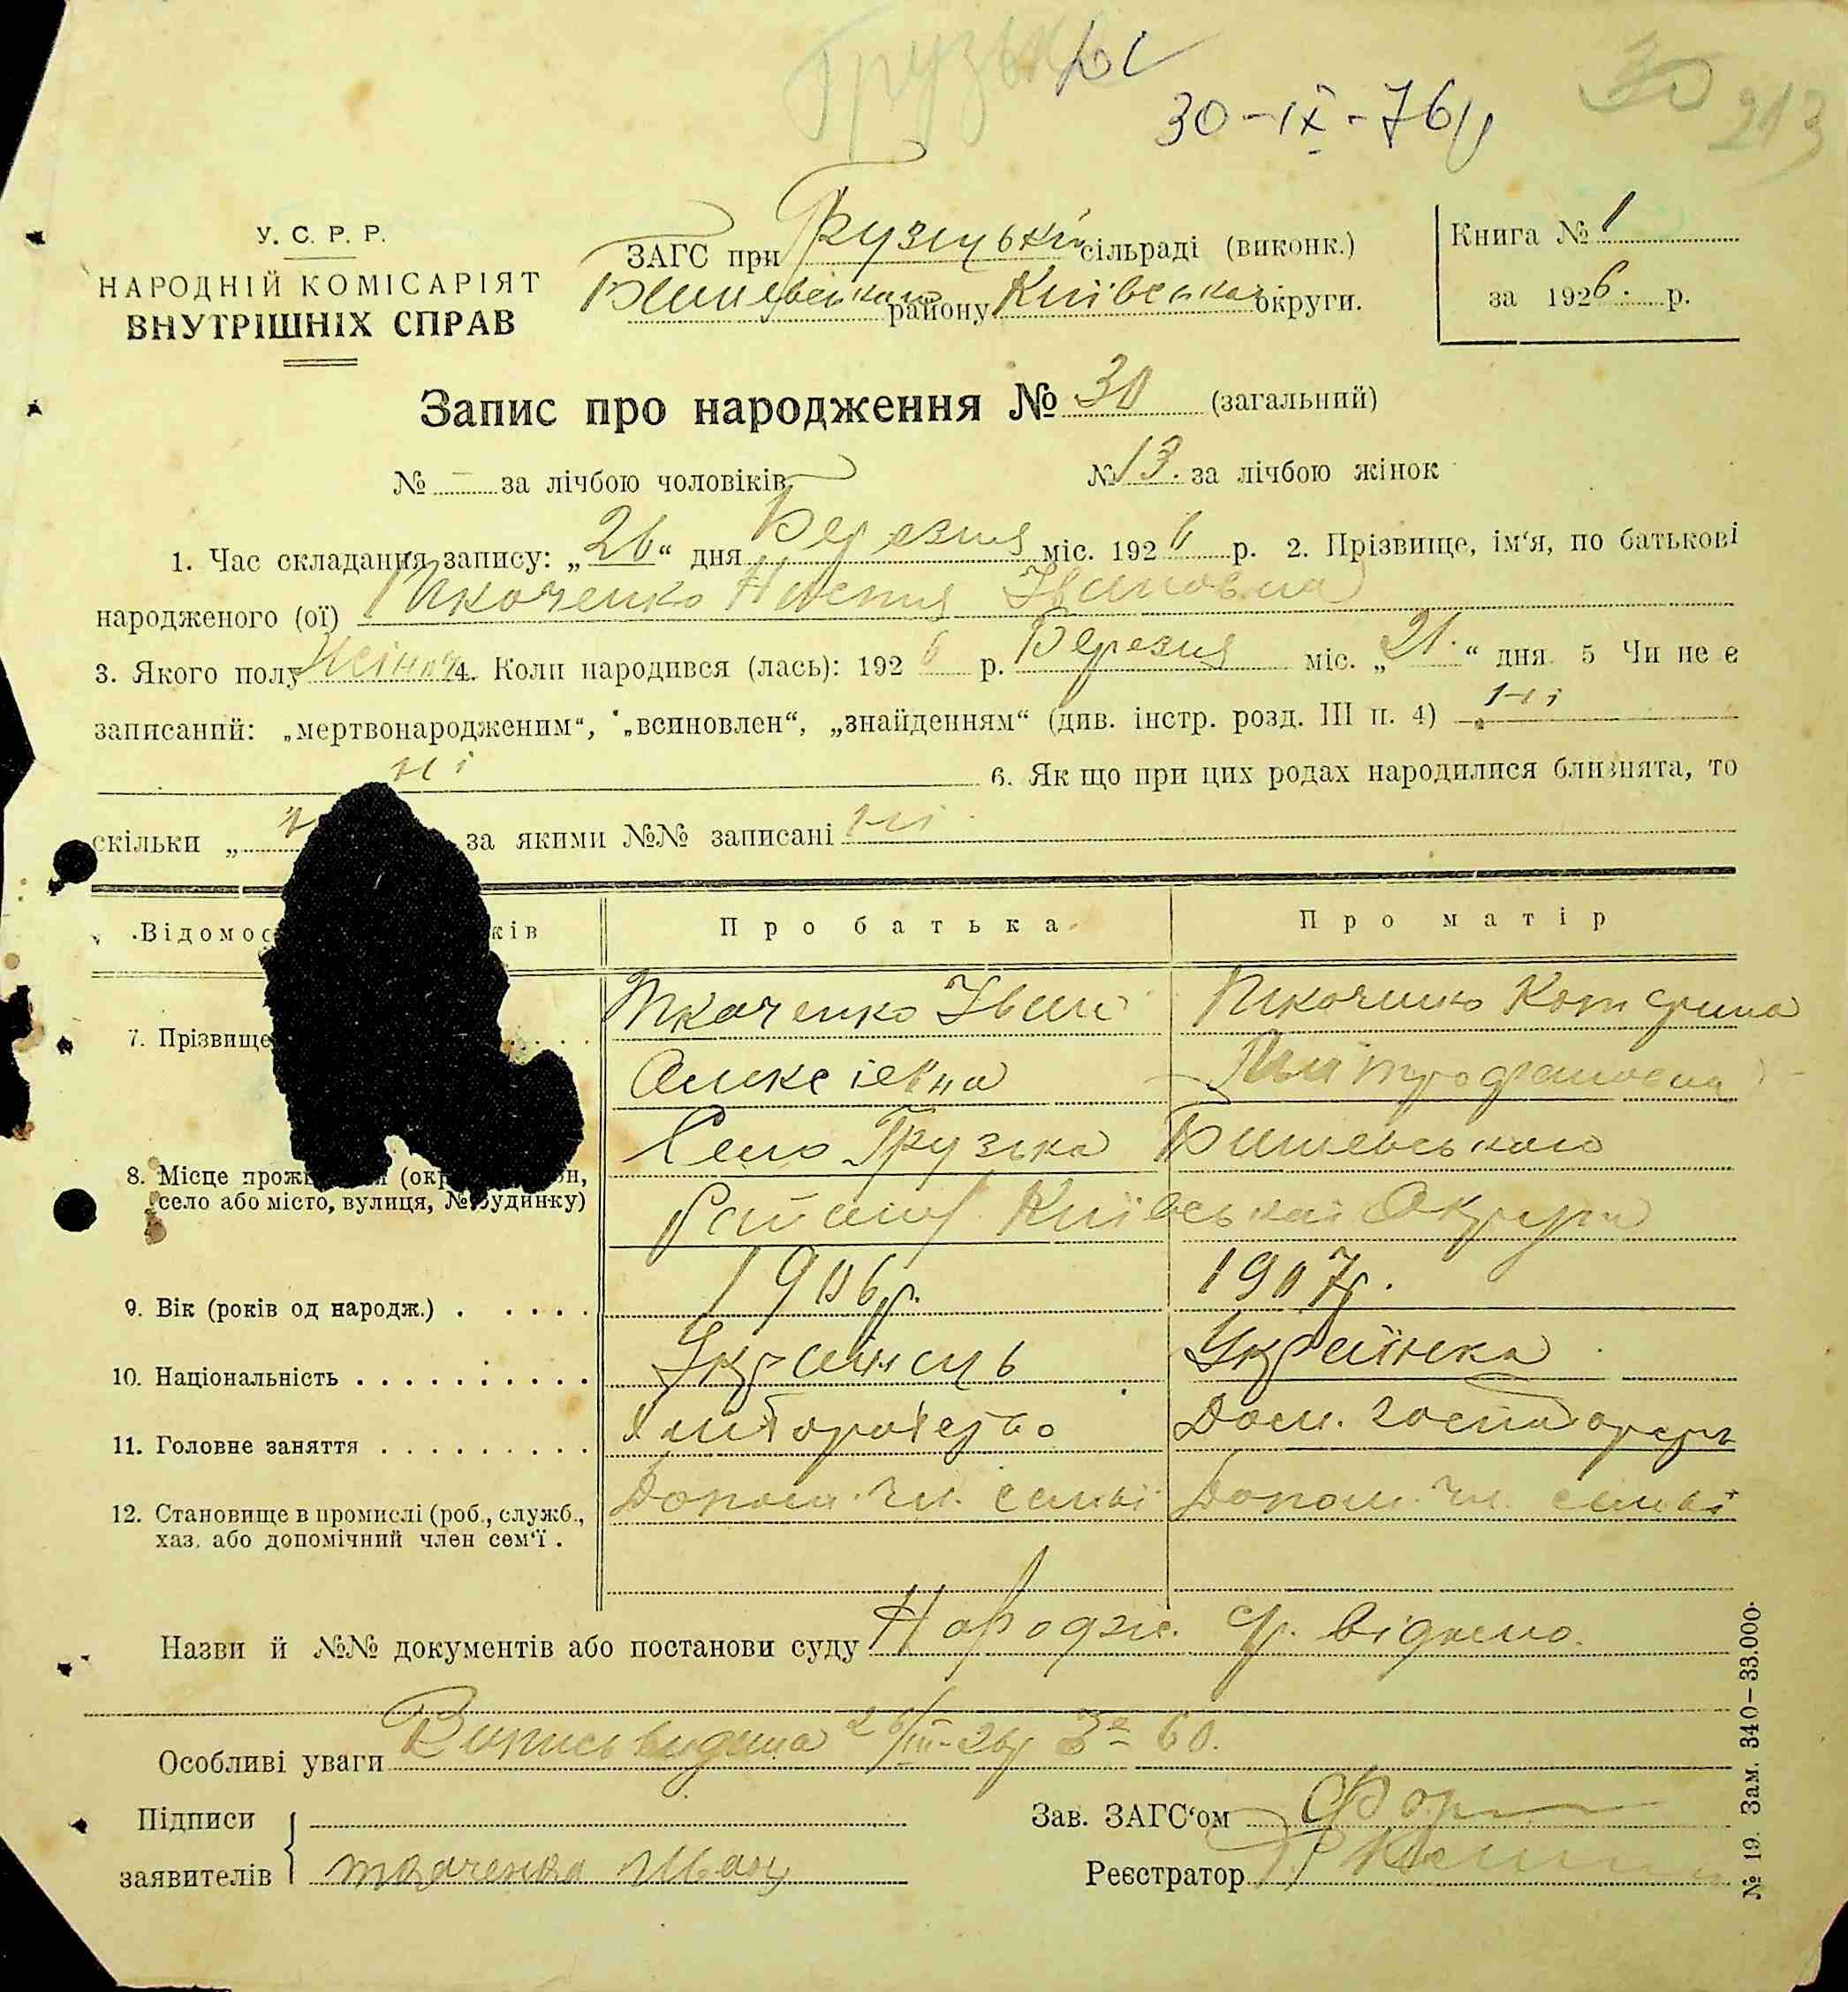 Грузька
30-IX-76р
30
213
У. С. Р. Р.
НАРОДНІЙ КОМІСАРІЯТ
ВНУТРІШНІХ СПРАВ
ЗАГС при Грузській сільраді (виконк.)
району Київської округи.
Книга № 1
за 1926. р.
Запис про народження № 30 (загальний)
№ – за лічбою чоловіків.
№ 13. за лічбою жінок
1. Час складання запису: „26“ дня Березня міс. 1926 р. 2. Прізвище, ім'я, по батькові
народженого (ої) Ткаченко Івановна
3. Якого полу Жіноч 4. Коли народився (лась): 1926 р. Березня міс. „21.“ дня. 5 Чи не є
записаний: „мертвонародженим“, „всиновлен“, „знайденням“ (див. інстр. розд. III п. 4) Ні
ні 6. Як що при цих родах народилися близнята, то
скільки „ за якими №№ записані ні
Відомос ків
Про батька
Про матір
7. Прізвище
Ткаченко Іван
Ткаченко Катерина
Олексієвна
Митрофановна
8. Місце прож (ок н,
село або місто, вулиця, № будинку)
Село Грузька Бишевського
Району Київської Округи
9. Вік (років од народж.)
1906р.
1907р.
10. Національність
Українець
Українка
11. Головне заняття
Хліборобство
Дом. господар
12. Становище в промислі (роб., служб.,
хаз. або допомічний член сем'ї.
Допом. чл. семьї
Допом. чл. семьї
Назви й №№ документів або постанови суду Народж. відомо.
Особливі уваги Випись видана 26/III-26р За № 60.
Підписи
заявителів
ткаченко Иван
Зав. ЗАГС'ом
Реєстратор
№ 19. Зам. 340–33.000.